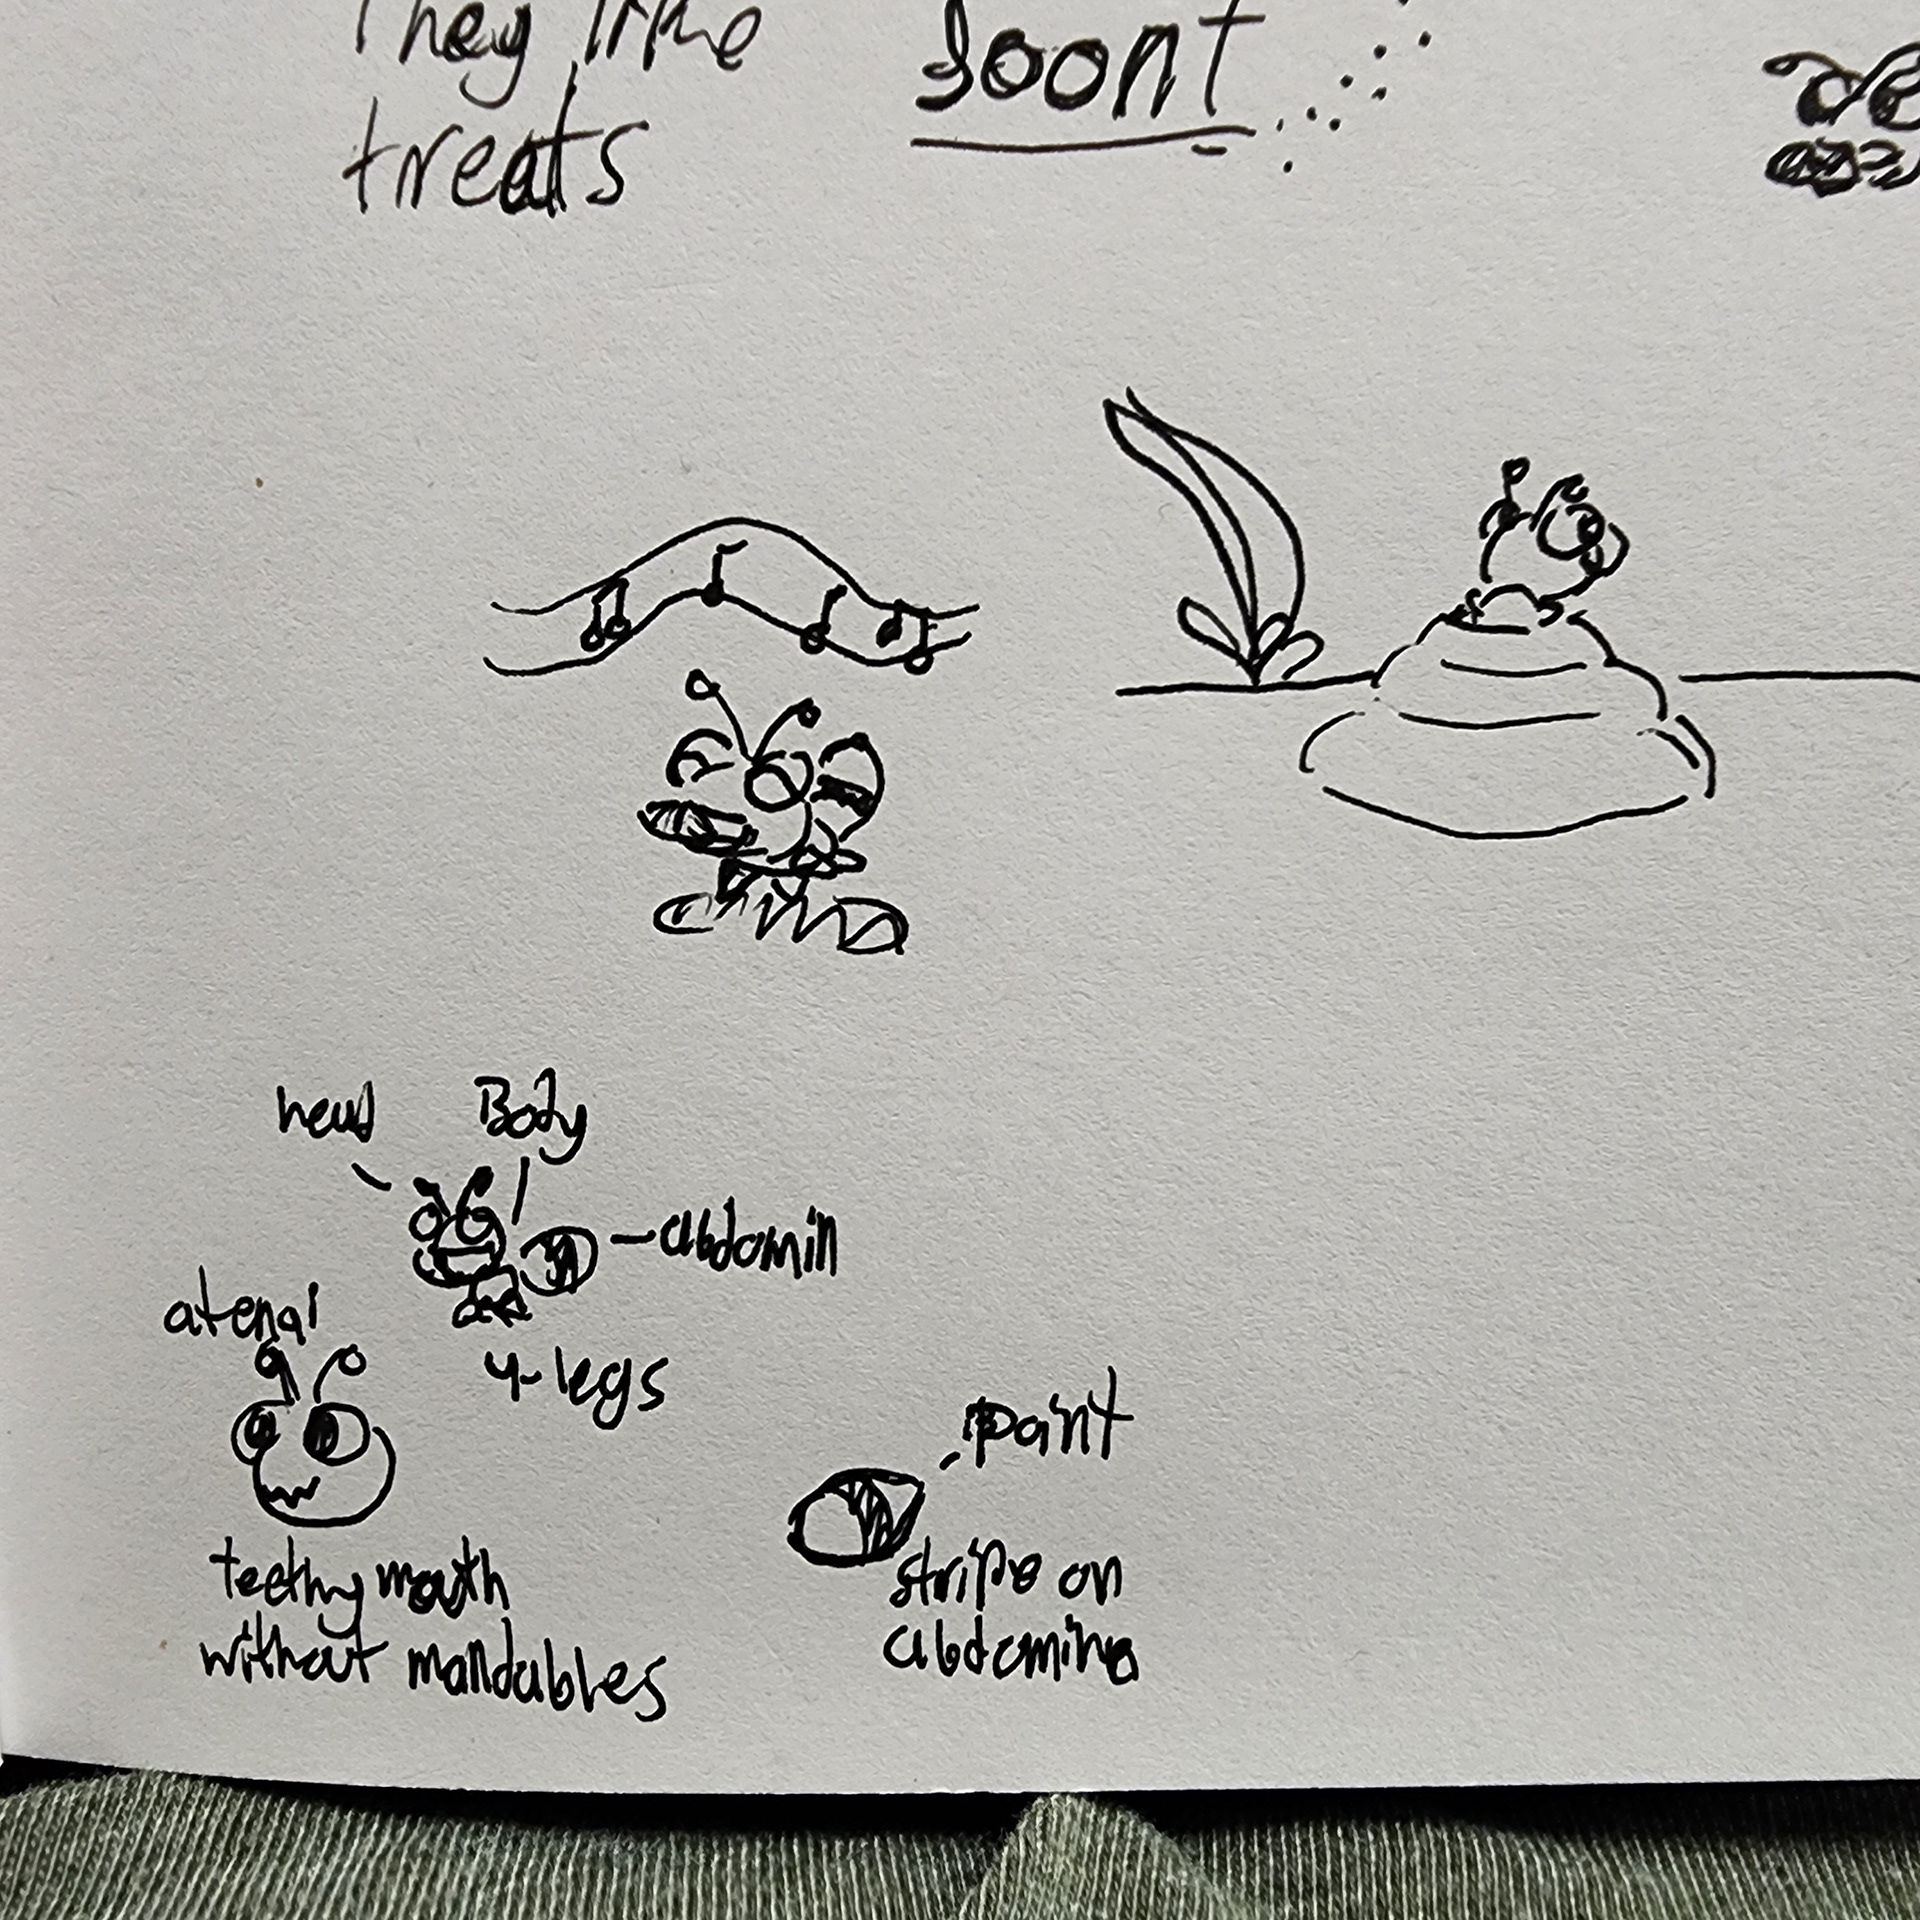 They like
treats
soont
head
Body
abdomin
atenai
4-legs
teethy mouth
without mandables
point
stripe on
abdomine